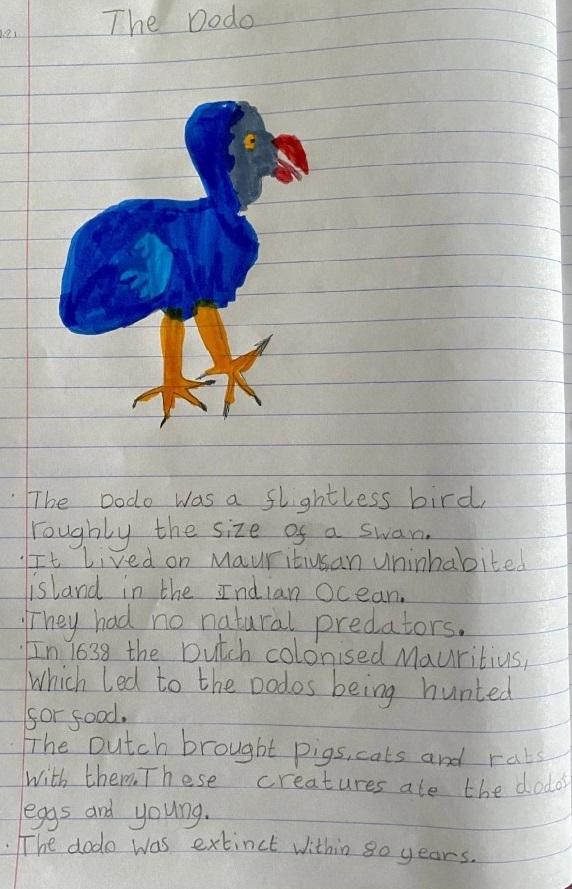 The Dodo
· The Dodo was a flightless bird,
roughly the size of a swan.
· It lived on Mauritius, an uninhabited
island in the Indian Ocean.
· They had no natural predators.
· In 1638 the Dutch colonised Mauritius,
which led to the Dodos being hunted
for food.
The Dutch brought pigs, cats and rats
with them. These creatures ate the dodos
eggs and young.
· The dodo was extinct within 80 years.